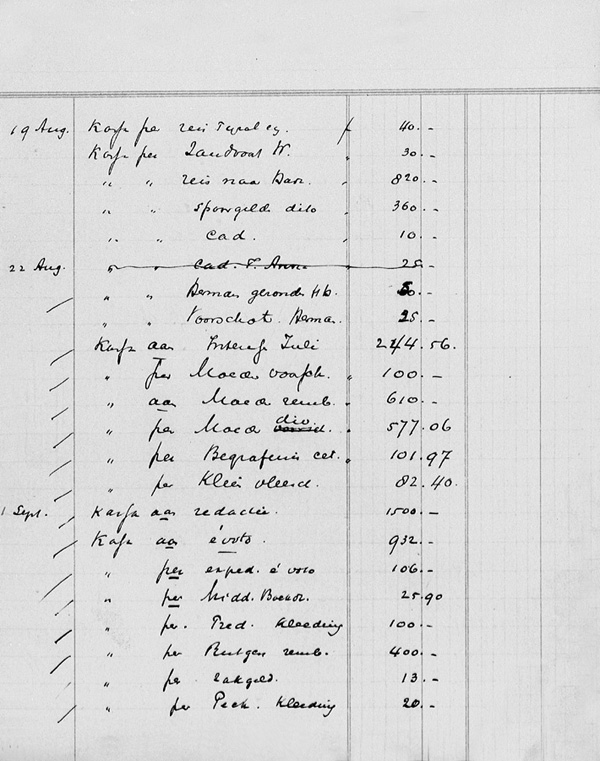 19 Aug. Kassa per reis Tyrol eg. f 40.-
Kassa per Zandvoort W. " 30.-
" " reis naar " 820.-
" " spoorgeld dito " 360.-
" " cad. " 10.-
22 Aug. " " cad. T. Anna " 25.-
" " Herman 50.-
" " Voorschot Herman. " 25.-
Kassa aan Interest Juli 244.56.
" per Moeder voorsch. " 100.-
" aan Moeder remb. " 610.-
" per Moeder div. " 577.06
" per Begrafenis cet. " 101.97
" per Kleis 82.40.
1 Sept. Kassa aan redactie. 1500.-
Kassa aan é voto. 932.-
" per exped. é voto 106.-
" per Midd. 25.90
" per. Fred. kleeding 100.-
" per Rutger remb. 400.-
" per zakgeld. 13.-
" per Peck. kleeding 20.-